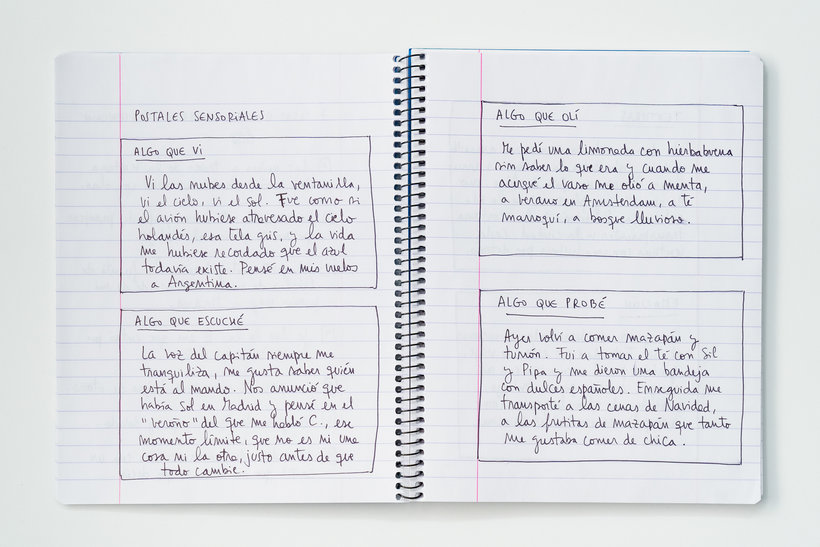 POSTALES SENSORIALES
ALGO QUE VI
Vi las nubes desde la ventanilla,
vi el cielo, vi el sol. Fue como si
el avión hubiese atravesado el cielo
holandés, esa tela gris, y la vida
me hubiese recordado que el azul
todavía existe. Pensé en mis vuelos
a Argentina.
ALGO QUE ESCUCHÉ
La voz del capitán siempre me
tranquiliza, me gusta saber quién
está al mando. Nos anunció que
había sol en Madrid y pensé en el
"veroño" del que me habló C., ese
momento límite, que no es ni una
cosa ni la otra, justo antes de que
todo cambie.
ALGO QUE OLÍ
Me pedí una limonada con hierbabuena
sin saber lo que era y cuando me
acerqué el vaso me olió a menta,
a verano en Amsterdam, a té
marroquí, a bosque lluvioso.
ALGO QUE PROBÉ
Ayer volví a comer mazapán y
turrón. Fui a tomar el té con Sil
y Pipa y me dieron una bandeja
con dulces españoles. Enseguida me
transporté a las cenas de Navidad,
a las frutitas de mazapán que tanto
me gustaba comer de chica.